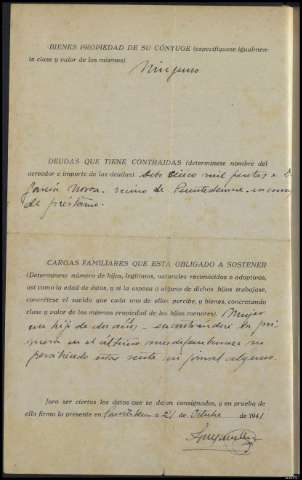 BIENES PROPIEDAD DE SU CÓNYUGE (especifíquese igualmen-
te clase y valor de los mismos)
Ninguno
DEUDAS QUE TIENE CONTRAIDAS (determínese nombre del
acreedor e importe de las deudas) Debo cinco mil pesetas a D.
García Novoa, vecino de Puentedeume, en concepto
de préstamo.
CARGAS FAMILIARES QUE ESTA OBLIGADO A SOSTENER
(Determínense número de hijos, legítimos, naturales reconocidos o adoptivos,
así como la edad de éstos, y si la esposa o alguno de dichos hijos trabajase,
concrétese el sueldo que cada uno de ellos percibe, y bienes, concretando
clase y valor de los mismos propiedad de los hijos menores) Mujer
una hija de dos años
no percibiendo renta ni jornal alguno.
Para ser ciertos los datos que se dejan consignados, y en prueba de
ello firmo la presente en a 21 de Octubre de 1941